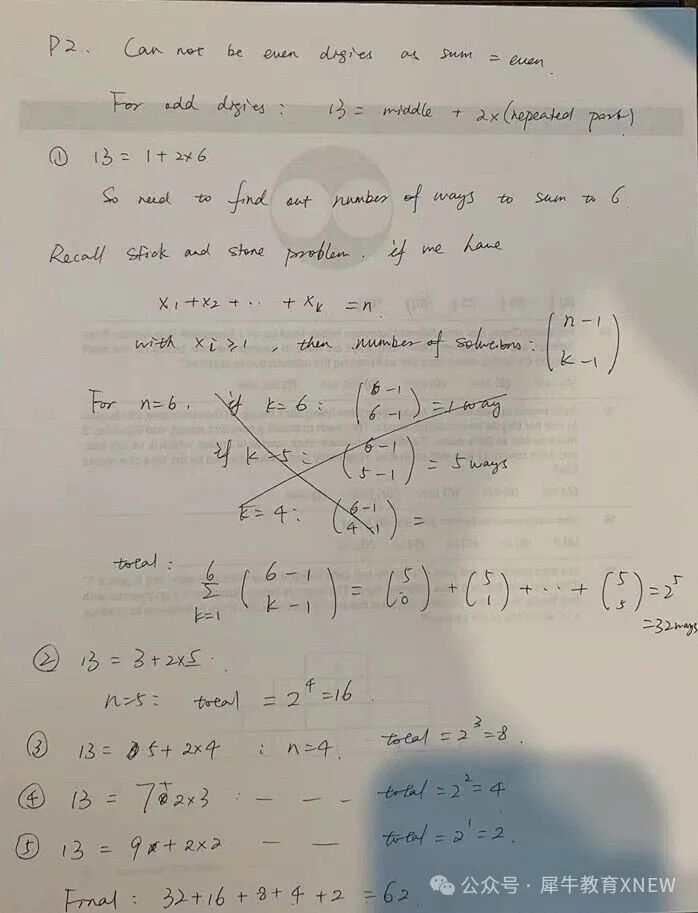 P2. Can not be even digies as sum = even.
For odd digies : 13 = middle + 2x (repeated part)
① 13 = 1 + 2x6
So need to find out number of ways to sum to 6.
Recall stick and stone problem. if we have
x₁ + x₂ + ·· + xₖ = n.
with xᵢ ≥ 1, then number of solutions : (n-1 k-1)
For n=6. if k=6 : (6-1 6-1) = 1 way
if k-5 : (6-1 5-1) = 5 ways
k=4 : (6-1 4-1) =
total : 6 Σ k=1 (6-1 k-1) = (5 0) + (5 1) + ··· + (5 5) = 2⁵
=32 ways
② 13 = 3 + 2x5.
n=5: total = 2⁴ = 16.
③ 13 = 5 + 2x4 : n=4. total = 2³ = 8.
④ 13 = 7 + 2x3 : — — — total = 2² = 4
⑤ 13 = 9 + 2x2 — — total = 2¹ = 2.
Final : 32+16+8+4+2 = 62
公众号 · 犀牛教育XNEW